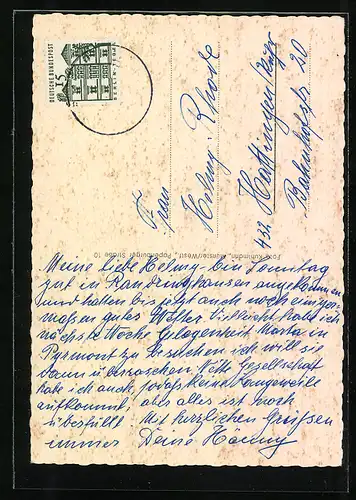 DEUTSCHE BUNDESPOST
15
BERLIN-TEGEL
Frau
Helmy Rhode
432 Hattingen/Ruhr
Bahnhofstr. 20
Foto Kuhlmann, Münster/Westf., Straße 10
Meine liebe Helmy - bin Sonntag
gut in angekommen
und hatten bis jetzt auch noch einiger-
maßen gutes Wetter. Vielleicht habe ich
nächste Woche Gelegenheit Marta in
Pyrmont zu besuchen ich will sie
dann überraschen. Nette Gesellschaft
habe ich auch, sodaß keine Langeweile
aufkommt, aber alles ist noch
überfüllt. Mit herzlichen Grüßen
immer Deine